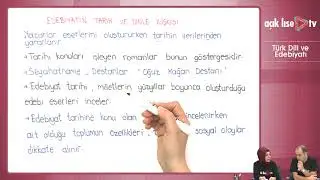 EDEBİYATIN TARİH VE DİNLE İLİŞKİSİ
Yazarlar eserlerini oluştururken tarihin verilerinden
yararlanır.
→ Tarihi konuları işleyen romanlar bunun göstergesidir.
→ Seyahatname, Destanlar "Oğuz Kağan Destanı"
→ Edebiyat tarihi, milletlerin yüzyıllar boyunca oluşturduğu
edebi eserleri inceler.
→ Edebiyat tarihine konu olan incelenirken
ait olduğu toplumun özellikleri, sosyal olaylar
dikkate alınır.
açık lise tv
Türk Dili ve
Edebiyatı